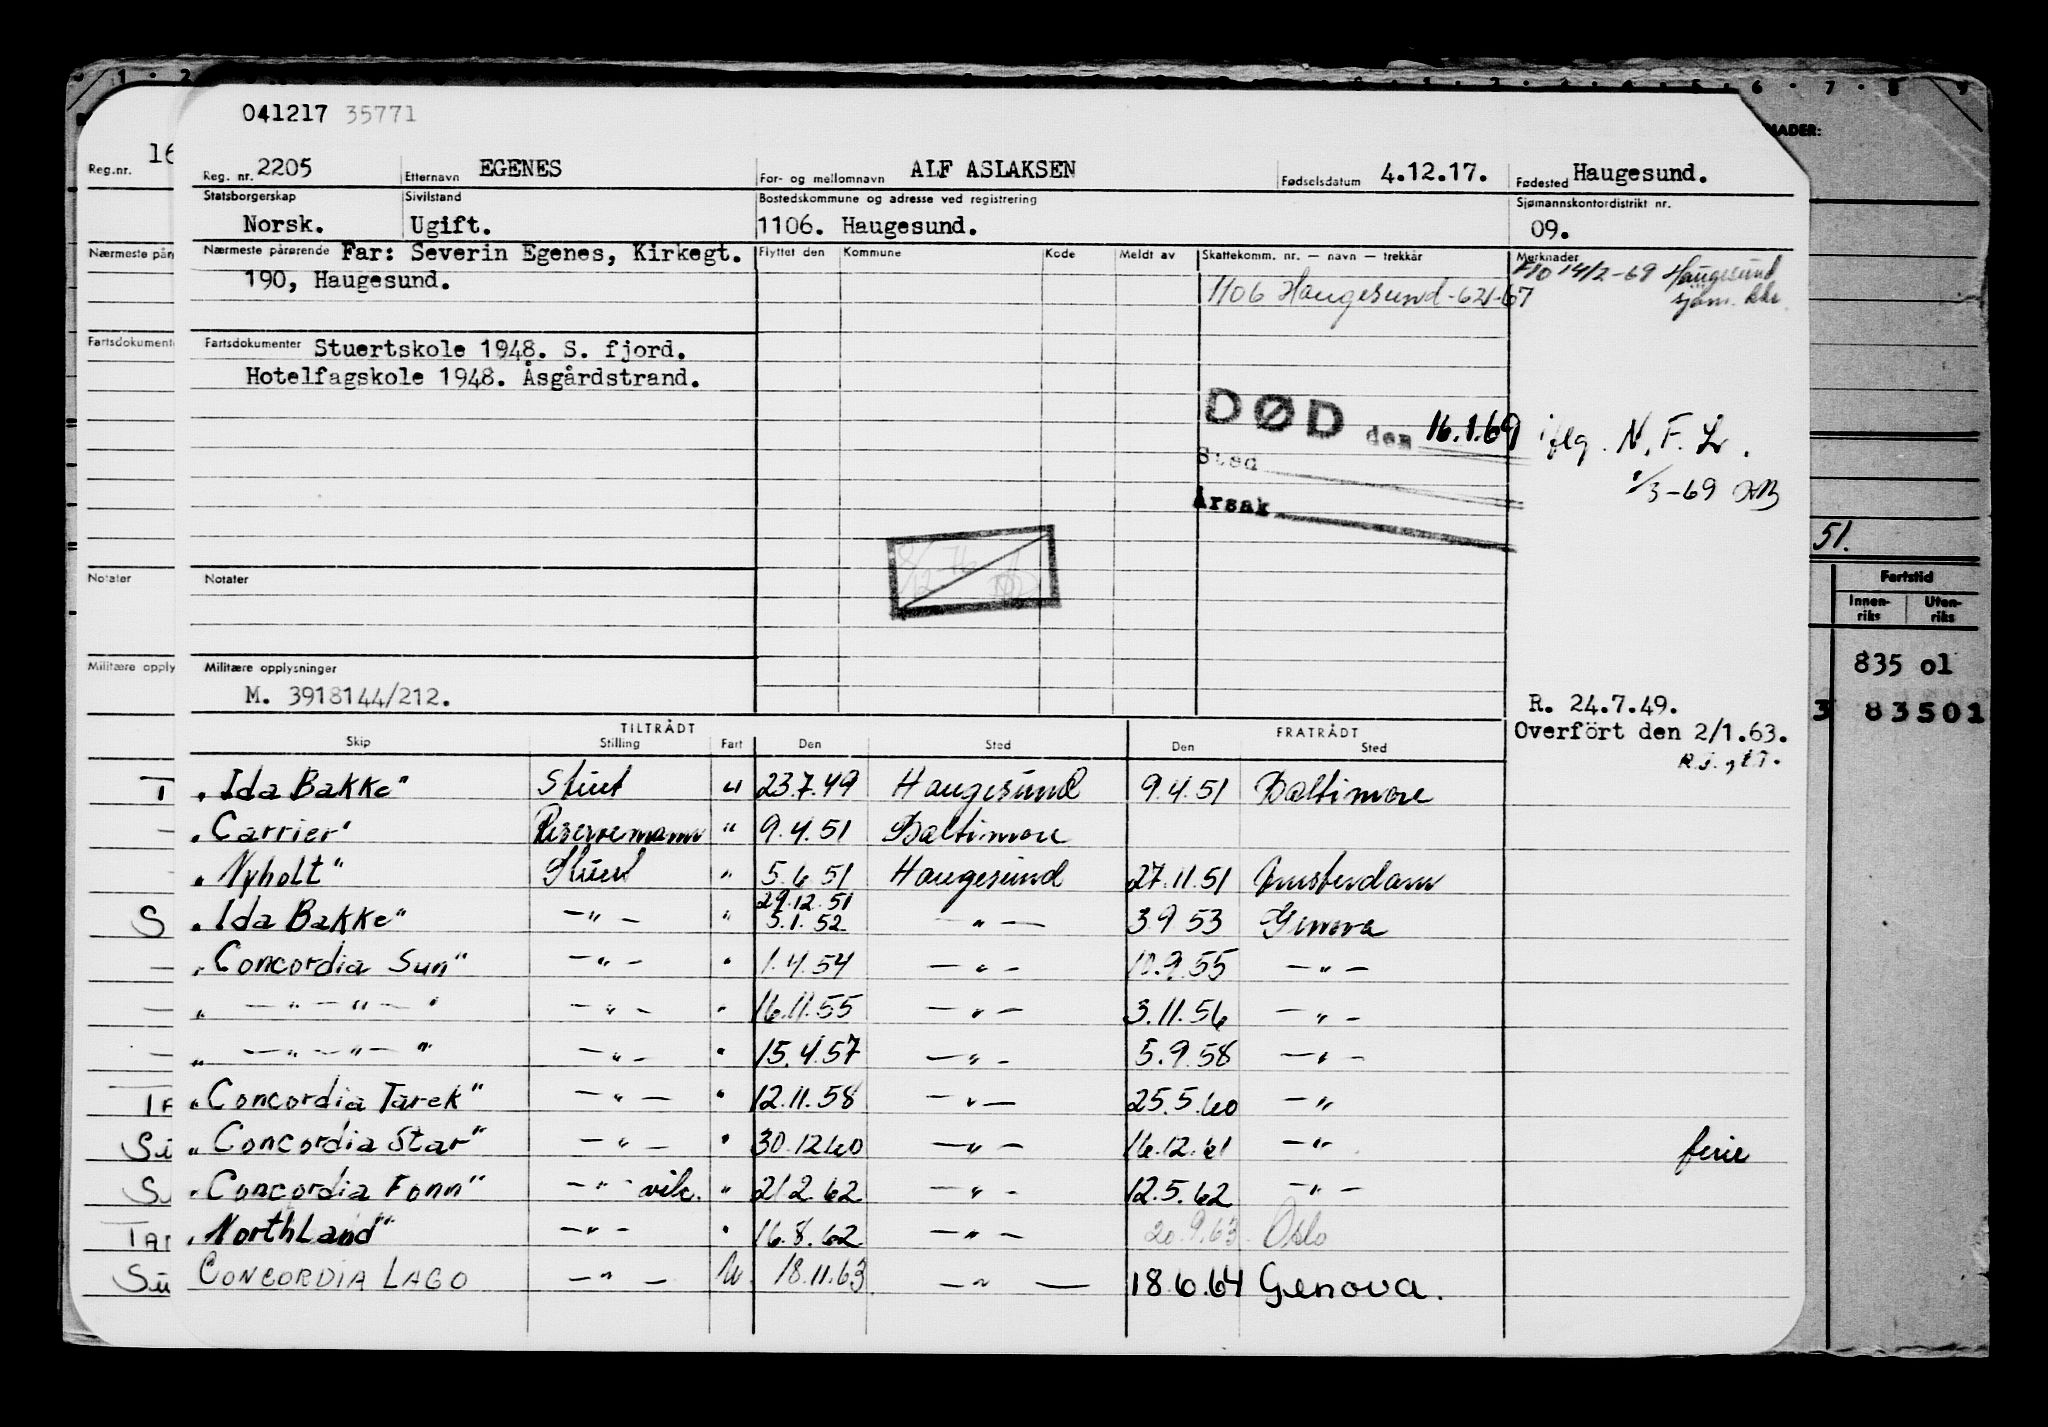 041217 35771
Reg. nr. 2205 Etternavn EGENES For- og mellomnavn ALF ASLAKSEN Fødselsdatum 4.12.17. Fødested Haugesund.
Statsborgerskap Sivilstand Bostedskommune og adresse ved registrering Sjømannskontordistrikt nr.
Norsk. Ugift. 1106. Haugesund. 09.
Nærmeste pårørende Far: Severin Egenes, Kirkegt. Flyttet den Kommune Kode Meldt av Skattekomm. nr. — navn — trekkår Merknader
190, Haugesund. 1106 Haugesund - 621-67 14/2-69 Haugesund
sjøm. ktr.
Fartsdokumenter Stuertskole 1948. S. fjord.
Hotelfagskole 1948. Åsgårdstrand.
DØD den 16.1.69 iflg. N.F.
Sted /3-69
Årsak
8/12-76
Notater
Militære opplysninger
M. 3918144/212. R. 24.7.49.
Overført den 2/1.63.
TILTRÅDT FRATRÅDT
Skip Stilling Fart Den Sted Den Sted
„Ida Bakke" Stuert u 23.7.49 Haugesund 9.4.51 Baltimore
„Carrier" Reservemann " 9.4.51 Baltimore
„Nyholt" Stuert " 5.6.51 Haugesund 27.11.51 Amsterdam
29.12.51
„Ida Bakke" —"— " 5.1.52 —"— 3.9.53 Genova
„Concordia Sun" —"— " 1.4.54 —"— 10.9.55 —"—
„—"—"—" —"— " 16.11.55 —"— 3.11.56 —"—
„—"—"—" —"— " 15.4.57 —"— 5.9.58 —"—
„Concordia Tarek" —"— " 12.11.58 —"— 25.5.60 —"
„Concordia Star" —"— " 30.12.60 —"— 16.12.61 —"— ferie
„Concordia Fonn" —"— vik. " 21.2.62 —"— 12.5.62 —"—
„NorthLand" —"— " 16.8.62 —"— 20.9.63 Oslo
CONCORDIA LAGO —"— U 18.11.63 —"— 18.6.64 Genova.
Reg.nr. 16
Nærmeste pår
Fartsdokument
Notater
Militære opply
51.
Fartstid
Innen-riks Uten-riks
835 01
3 83501